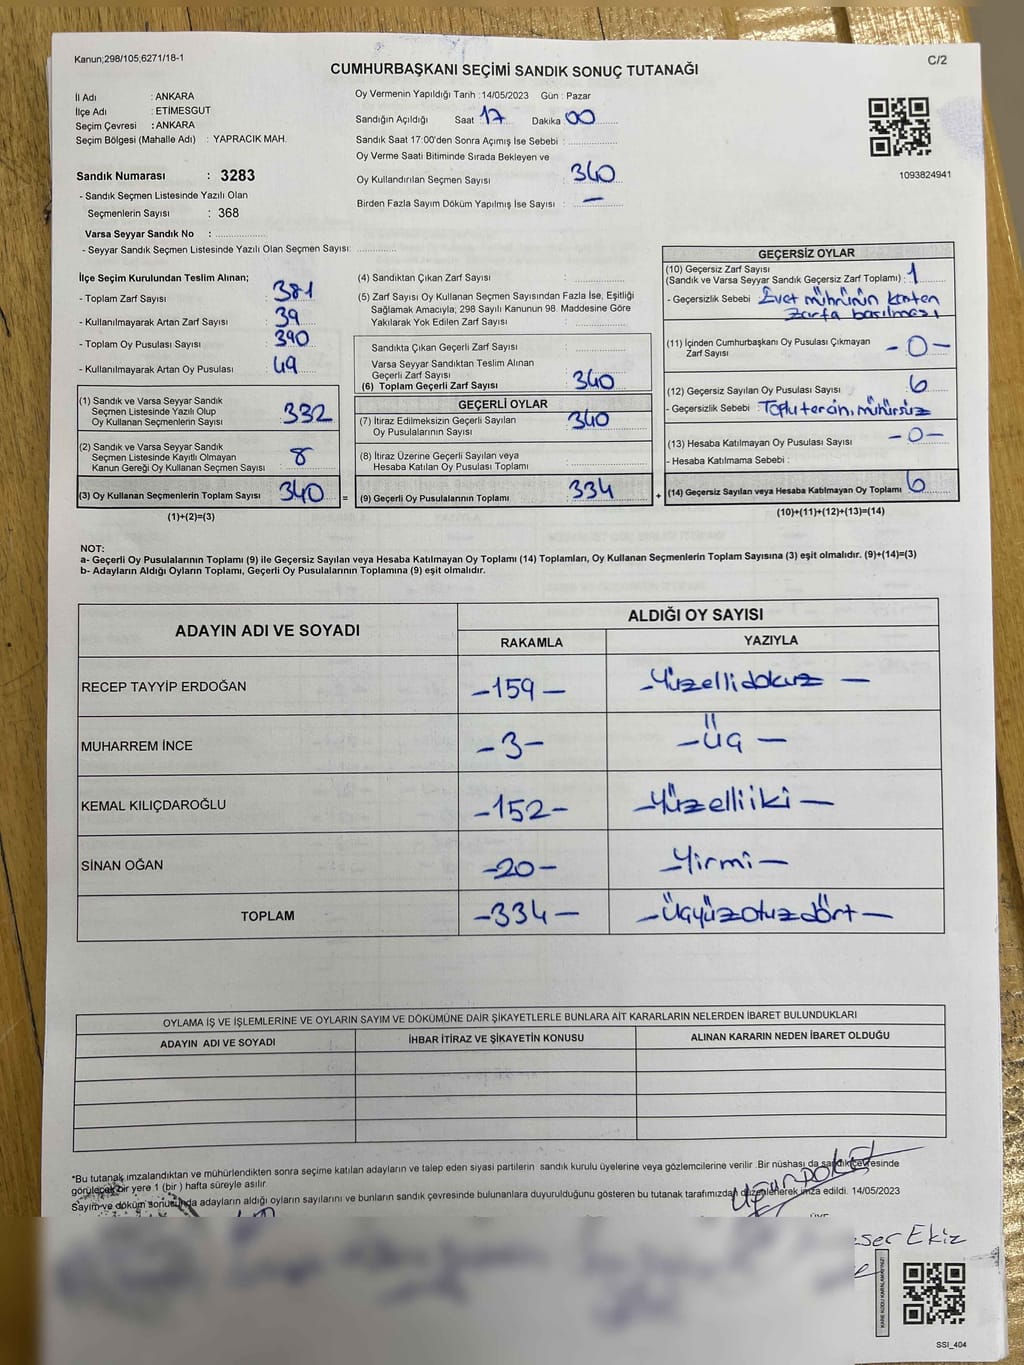 Kanun;298/105;6271/18-1
C/2
CUMHURBAŞKANI SEÇİMİ SANDIK SONUÇ TUTANAĞI
İl Adı : ANKARA
İlçe Adı : ETİMESGUT
Seçim Çevresi : ANKARA
Seçim Bölgesi (Mahalle Adı) : YAPRACIK MAH.
Sandık Numarası : 3283
- Sandık Seçmen Listesinde Yazılı Olan
Seçmenlerin Sayısı : 368
Varsa Seyyar Sandık No :
- Seyyar Sandık Seçmen Listesinde Yazılı Olan Seçmen Sayısı:
Oy Vermenin Yapıldığı Tarih :14/05/2023 Gün : Pazar
Sandığın Açıldığı Saat 17 Dakika 00
Sandık Saat 17:00'den Sonra Açımış İse Sebebi :
Oy Verme Saati Bitiminde Sırada Bekleyen ve
Oy Kullandırılan Seçmen Sayısı : 340
Birden Fazla Sayım Döküm Yapılmış İse Sayısı : —
1093824941
İlçe Seçim Kurulundan Teslim Alınan;
- Toplam Zarf Sayısı : 381
- Kullanılmayarak Artan Zarf Sayısı : 39
- Toplam Oy Pusulası Sayısı : 390
- Kullanılmayarak Artan Oy Pusulası : 49
(1) Sandık ve Varsa Seyyar Sandık
Seçmen Listesinde Yazılı Olup
Oy Kullanan Seçmenlerin Sayısı : 332
(2) Sandık ve Varsa Seyyar Sandık
Seçmen Listesinde Kayıtlı Olmayan
Kanun Gereği Oy Kullanan Seçmen Sayısı : 8
(3) Oy Kullanan Seçmenlerin Toplam Sayısı : 340
(1)+(2)=(3)
=
(4) Sandıktan Çıkan Zarf Sayısı :
(5) Zarf Sayısı Oy Kullanan Seçmen Sayısından Fazla İse, Eşitliği
Sağlamak Amacıyla; 298 Sayılı Kanunun 98. Maddesine Göre
Yakılarak Yok Edilen Zarf Sayısı :
Sandıkta Çıkan Geçerli Zarf Sayısı :
Varsa Seyyar Sandıktan Teslim Alınan
Geçerli Zarf Sayısı :
(6) Toplam Geçerli Zarf Sayısı : 340
GEÇERLİ OYLAR
(7) İtiraz Edilmeksizin Geçerli Sayılan
Oy Pusulalarının Sayısı : 340
(8) İtiraz Üzerine Geçerli Sayılan veya
Hesaba Katılan Oy Pusulası Toplamı :
(9) Geçerli Oy Pusulalarının Toplamı : 334
+
GEÇERSİZ OYLAR
(10) Geçersiz Zarf Sayısı
(Sandık ve Varsa Seyyar Sandık Geçersiz Zarf Toplamı) : 1
- Geçersizlik Sebebi : Evet mührünün
zarfa basılması
(11) İçinden Cumhurbaşkanı Oy Pusulası Çıkmayan
Zarf Sayısı : -0-
(12) Geçersiz Sayılan Oy Pusulası Sayısı : 6
- Geçersizlik Sebebi : Toplu tercih, mühürsüz
(13) Hesaba Katılmayan Oy Pusulası Sayısı : -0-
- Hesaba Katılmama Sebebi :
(14) Geçersiz Sayılan veya Hesaba Katılmayan Oy Toplamı : 6
(10)+(11)+(12)+(13)=(14)
NOT:
a- Geçerli Oy Pusulalarının Toplamı (9) ile Geçersiz Sayılan veya Hesaba Katılmayan Oy Toplamı (14) Toplamları, Oy Kullanan Seçmenlerin Toplam Sayısına (3) eşit olmalıdır. (9)+(14)=(3)
b- Adayların Aldığı Oyların Toplamı, Geçerli Oy Pusulalarının Toplamına (9) eşit olmalıdır.
ADAYIN ADI VE SOYADI
ALDIĞI OY SAYISI
RAKAMLA
YAZIYLA
RECEP TAYYİP ERDOĞAN -159- -Yüzellidokuz-
MUHARREM İNCE -3- -Üç-
KEMAL KILIÇDAROĞLU -152- -Yüzelliiki-
SİNAN OĞAN -20- -Yirmi-
TOPLAM -334- -Üçyüzotuzdört-
OYLAMA İŞ VE İŞLEMLERİNE VE OYLARIN SAYIM VE DÖKÜMÜNE DAİR ŞİKAYETLERLE BUNLARA AİT KARARLARIN NELERDEN İBARET BULUNDUKLARI
ADAYIN ADI VE SOYADI
İHBAR İTİRAZ VE ŞİKAYETİN KONUSU
ALINAN KARARIN NEDEN İBARET OLDUĞU
*Bu tutanak imzalandıktan ve mühürlendikten sonra seçime katılan adayların ve talep eden siyasi partilerin sandık kurulu üyelerine veya gözlemcilerine verilir .Bir nüshası da sandık çevresinde
görülecek bir yere 1 (bir ) hafta süreyle asılır.
Sayım ve döküm sonusunda adayların aldığı oyların sayılarını ve bunların sandık çevresinde bulunanlara duyurulduğunu gösteren bu tutanak tarafımızdan düzenlenerek imza edildi. 14/05/2023
Ekiz
SSI_404